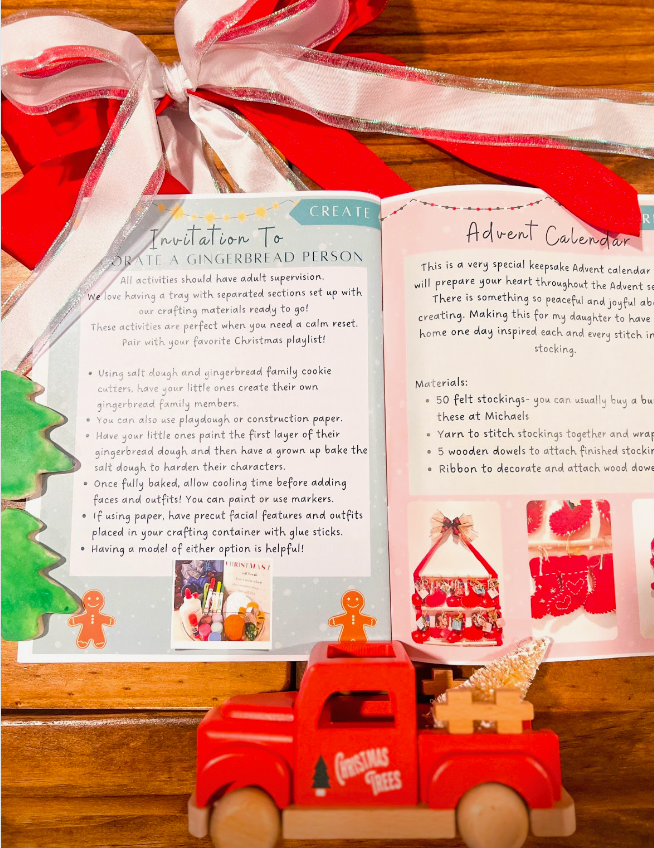 CREATE
Invitation To
ORATE A GINGERBREAD PERSON
All activities should have adult supervision.
We love having a tray with separated sections set up with
our crafting materials ready to go!
These activities are perfect when you need a calm reset.
Pair with your favorite Christmas playlist!
• Using salt dough and gingerbread family cookie
cutters, have your little ones create their own
gingerbread family members.
• You can also use playdough or construction paper.
• Have your little ones paint the first layer of their
gingerbread dough and then have a grown up bake the
salt dough to harden their characters.
• Once fully baked, allow cooling time before adding
faces and outfits! You can paint or use markers.
• If using paper, have precut facial features and outfits
placed in your crafting container with glue sticks.
• Having a model of either option is helpful!
Advent Calendar
This is a very special keepsake Advent calendar
will prepare your heart throughout the Advent se
There is something so peaceful and joyful abo
creating. Making this for my daughter to have
home one day inspired each and every stitch in
stocking.
Materials:
• 50 felt stockings- you can usually buy a bu
these at Michaels
• Yarn to stitch stockings together and wrap
• 5 wooden dowels to attach finished stockin
• Ribbon to decorate and attach wood dowe
CHRISTMAS
TREES